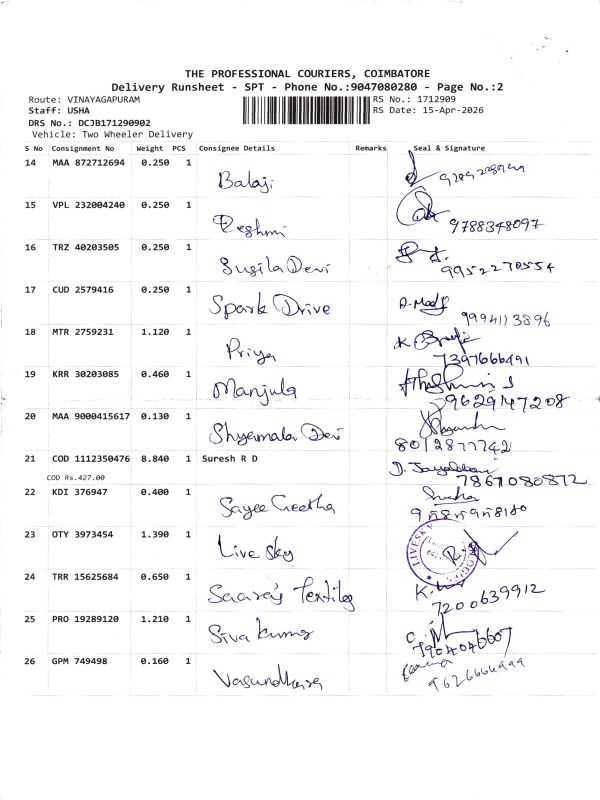 THE PROFESSIONAL COURIERS, COIMBATORE
Delivery Runsheet - SPT - Phone No.:9047080280 - Page No.:2
Route: VINAYAGAPURAM RS No.: 1712909
Staff: USHA RS Date: 15-Apr-2026
DRS No.: DCJB171290902
Vehicle: Two Wheeler Delivery
S No Consignment No Weight PCS Consignee Details Remarks Seal & Signature
14 MAA 872712694 0.250 1 Balaji
15 VPL 232004240 0.250 1 Reshmi
9788348097
16 TRZ 40203505 0.250 1 Susila Devi
9952270554
17 CUD 2579416 0.250 1 Spark Drive
9994113896
18 MTR 2759231 1.120 1 Priya
7397666491
19 KRR 30203085 0.460 1 Manjula
9629147208
20 MAA 9000415617 0.130 1 Shyamala Devi
8012877742
21 COD 1112350476 8.840 1 Suresh R D
COD Rs.427.00 7867080872
22 KDI 376947 0.400 1 Sayee Geetha
23 OTY 3973454 1.390 1 Live Sky
LIVESKY
24 TRR 15625684 0.650 1 Textiles
7200639912
25 PRO 19289120 1.210 1 Siva kumar
7904046607
26 GPM 749498 0.160 1 Vasundhara
9626666999